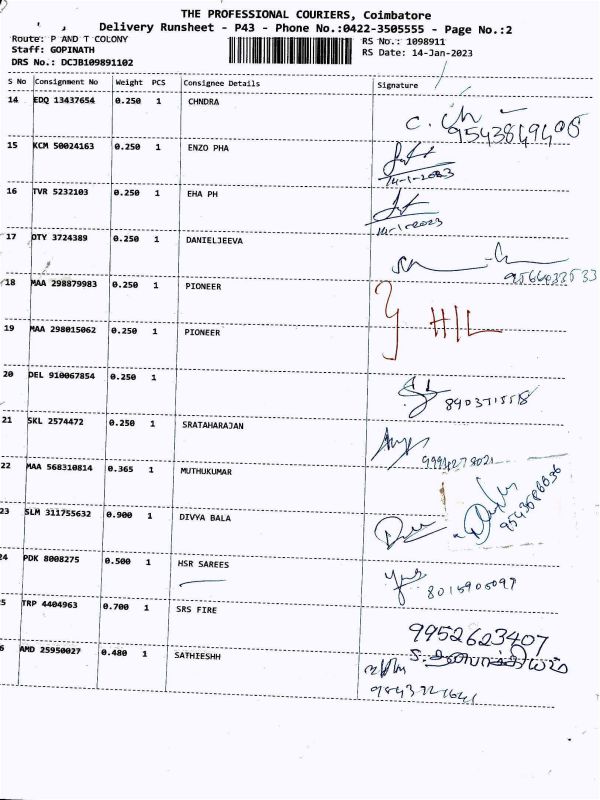 THE PROFESSIONAL COURIERS, Coimbatore
Delivery Runsheet - P43 - Phone No.:0422-3505555 - Page No.:2
Route: P AND T COLONY
RS No.: 1098911
Staff: GOPINATH
RS Date: 14-Jan-2023
DRS No.: DCJB109891102
S No Consignment No Weight PCS Consignee Details Signature
14 EDQ 13437654 0.250 1 CHNDRA
C. Ch
9543849408
15 KCM 50024163 0.250 1 ENZO PHA
14-1-2023
16 TVR 5232103 0.250 1 EHA PH
14-1-2023
17 OTY 3724389 0.250 1 DANIELJEEVA
9566033533
18 MAA 298879983 0.250 1 PIONEER
H/L
19 MAA 298015062 0.250 1 PIONEER
20 DEL 910067854 0.250 1
8903715518
21 SKL 2574472 0.250 1 SRATAHARAJAN
9994278021
22 MAA 568310814 0.365 1 MUTHUKUMAR
9543686636
23 SLM 311755632 0.900 1 DIVYA BALA
24 PDK 8008275 0.500 1 HSR SAREES
8015905097
5 TRP 4404963 0.700 1 SRS FIRE
9952623407
6 AMD 25950027 0.480 1 SATHIESHH